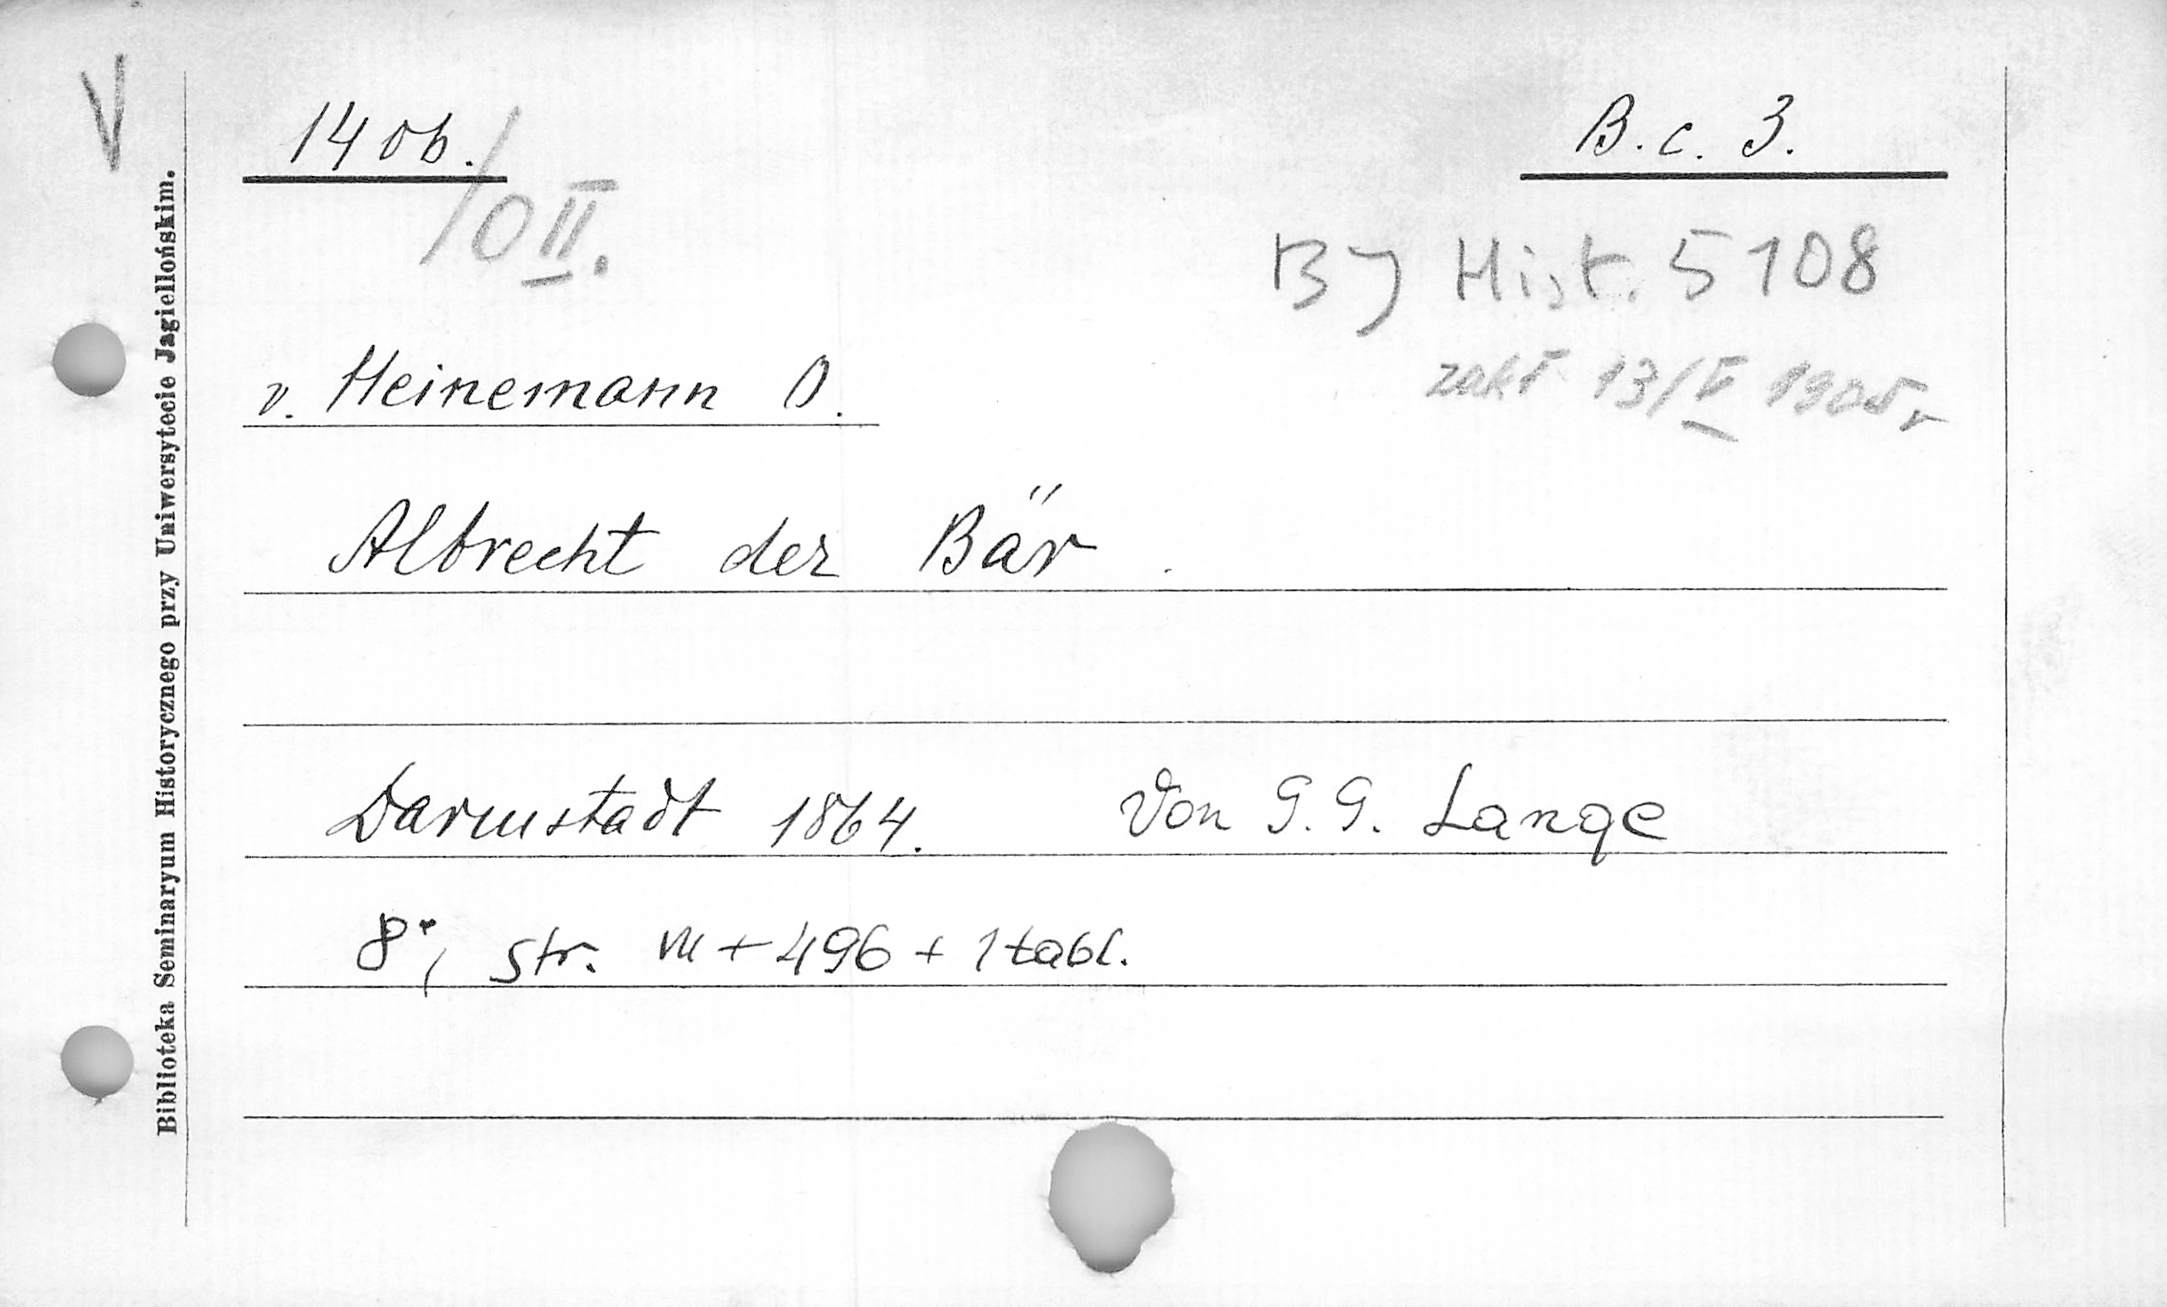 V
1406. / O II.
B. c. 3.
BJ Hist. 5108
13/V 1905 r
v. Heinemann O.
Albrecht der Bär.
Darmstadt 1864. Von G. G. Lange
8°, str. VII + 496 + 1 tabl.
Biblioteka Seminaryum Historycznego przy Uniwersytecie Jagiellońskim.